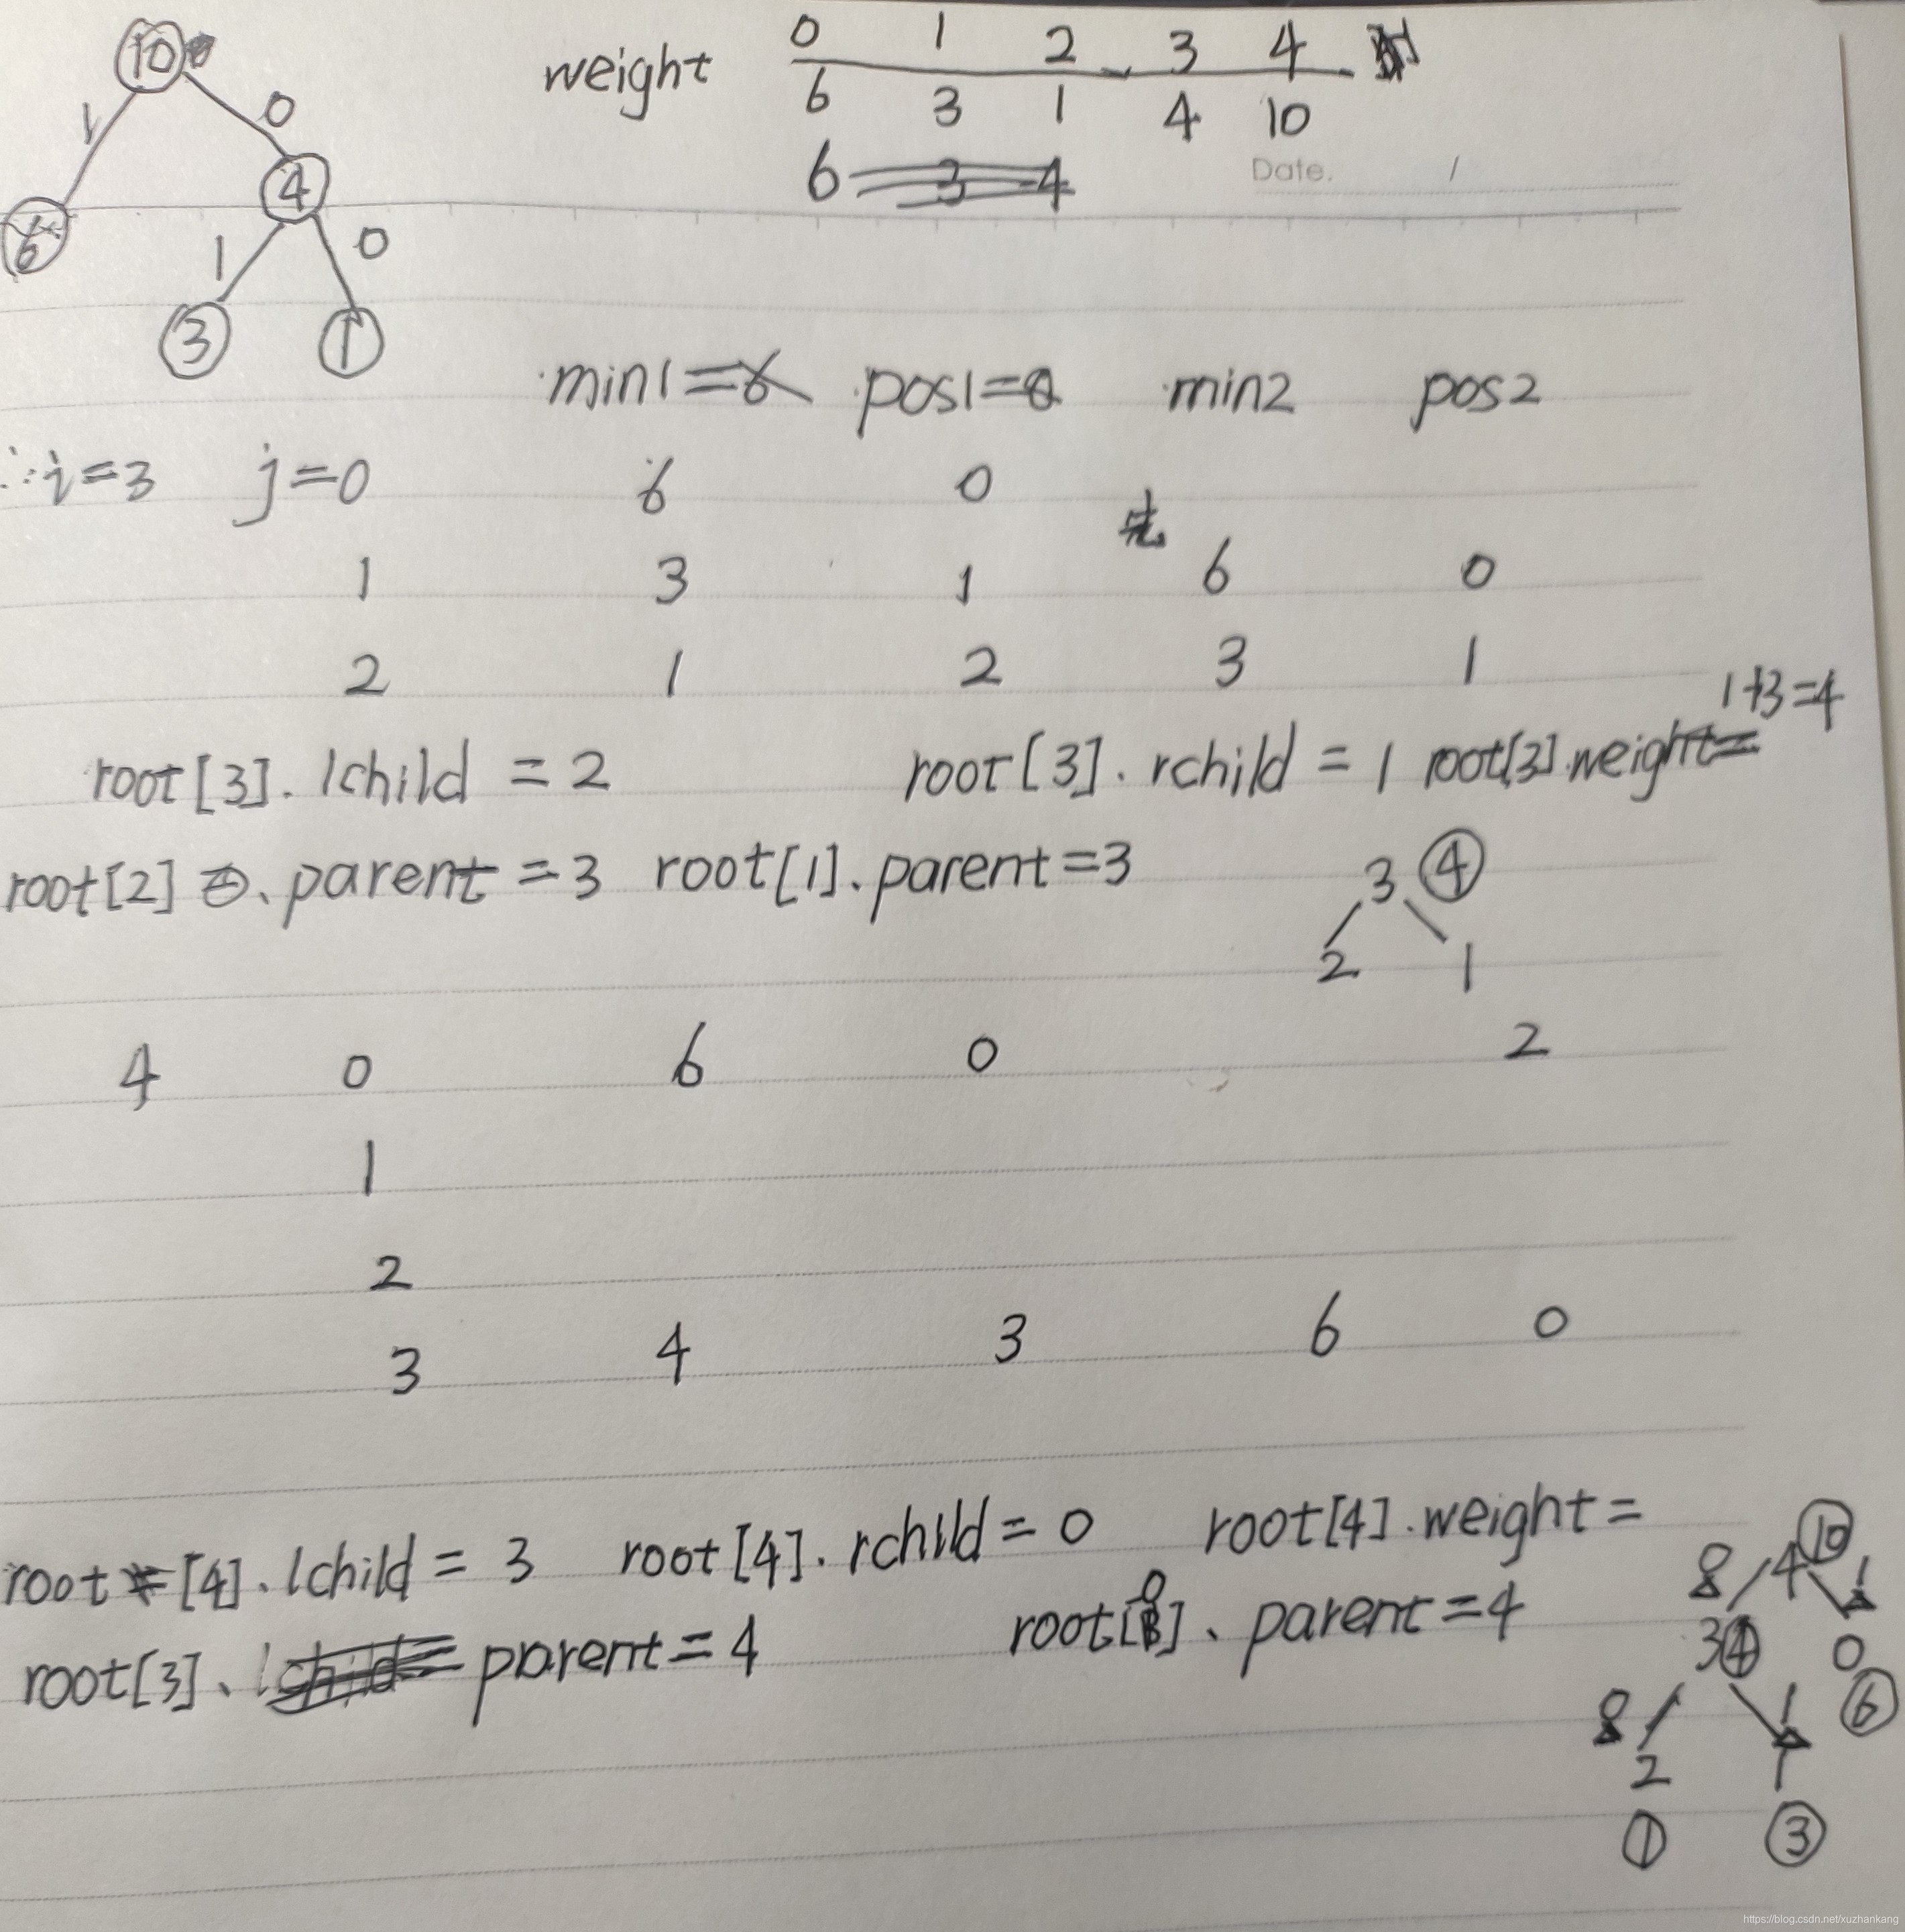 10
weight 0 1 2 3 4
6 3 1 4 10
6 3 4
Date. /
1 0
4
6
1 0
3 1
min1=6 pos1=0 min2 pos2
∴i=3 j=0 6 0
1 3 1 6 0
2 1 2 3 1
1+3=4
root[3]. lchild = 2 root[3]. rchild = 1 root[3].weight=
root[2] . parent = 3 root[1]. parent=3 3 ④
2 1
4 0 6 0 2
1
2
3 4 3 6 0
root [4]. lchild = 3 root[4]. rchild = 0 root[4].weight=
0 4 ⑩ 1
root[3]. lchild= parent=4 root[0]. parent=4
3 ④ 0
0 1 ⑥
2 1
① ③
https://blog.csdn.net/xuzhankang